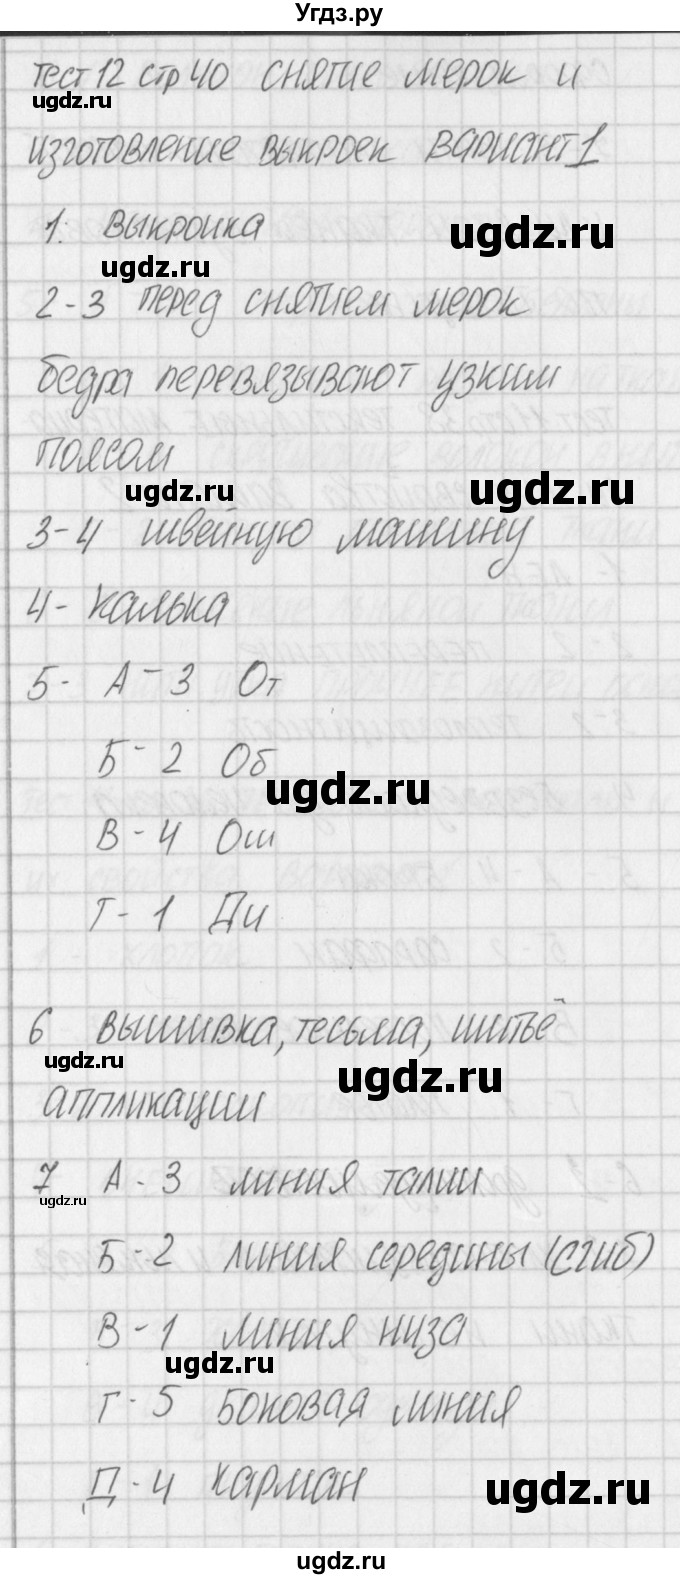 Угдз.ру
Тест 12 стр 40 снятие мерок и
ugdz.ru
изготовление выкроек Вариант 1
1. выкройка
ugdz.ru
ugdz.ru
2-3 перед снятием мерок
бедра перевязывают узким
поясом
ugdz.ru
ugdz.ru
3-4 швейную машину
4- калька
5- А-3 От
Б-2 Об
ugdz.ru
В-4 Ош
Г-1 Ди
6 вышивка, тесьма, шитьё
ugdz.ru
ugdz.ru
аппликации
7 А-3 линия талии
ugdz.ru
Б-2 линия середины (сгиб)
В-1 линия низа
ugdz.ru
Г-5 Боковая линия
Д-4 карман
ugdz.ru
ugdz.ru